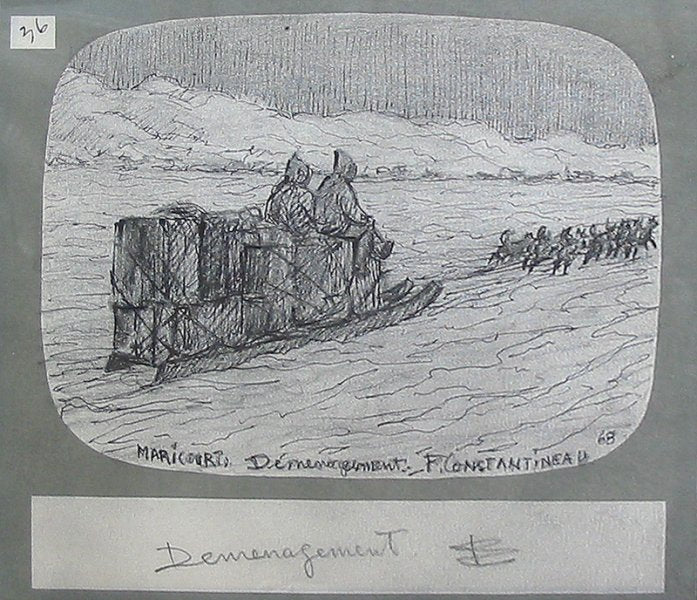 36
MARICOURT. Déménagement. F. CONSTANTINEAU 68
Demenagement